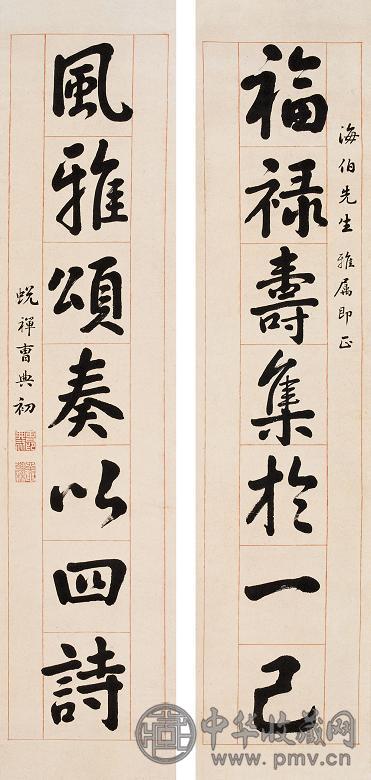 海伯先生 雅属即正
福禄壽集於一己
風雅頌奏以四詩
蜕禅曹典初
中华收藏网
www.pmv.cn